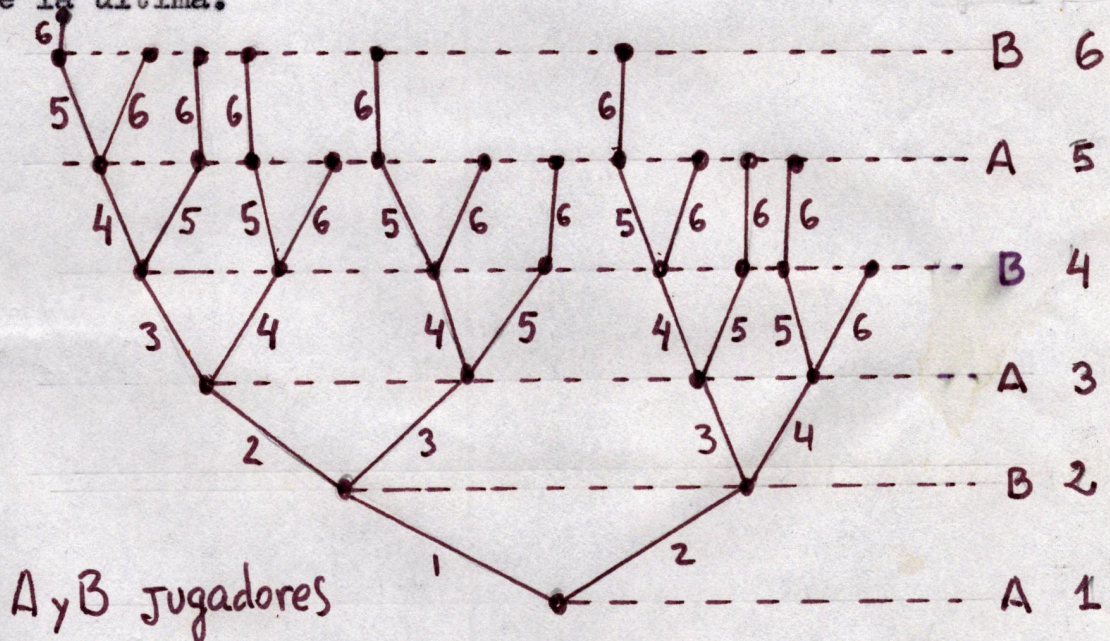 e la última.
6
B 6
5 6 6 6 6 6
A 5
4 5 5 6 5 6 6 5 6 6 6
B 4
3 4 4 5 4 5 5 6
A 3
2 3 3 4
B 2
1 2
A y B jugadores
A 1